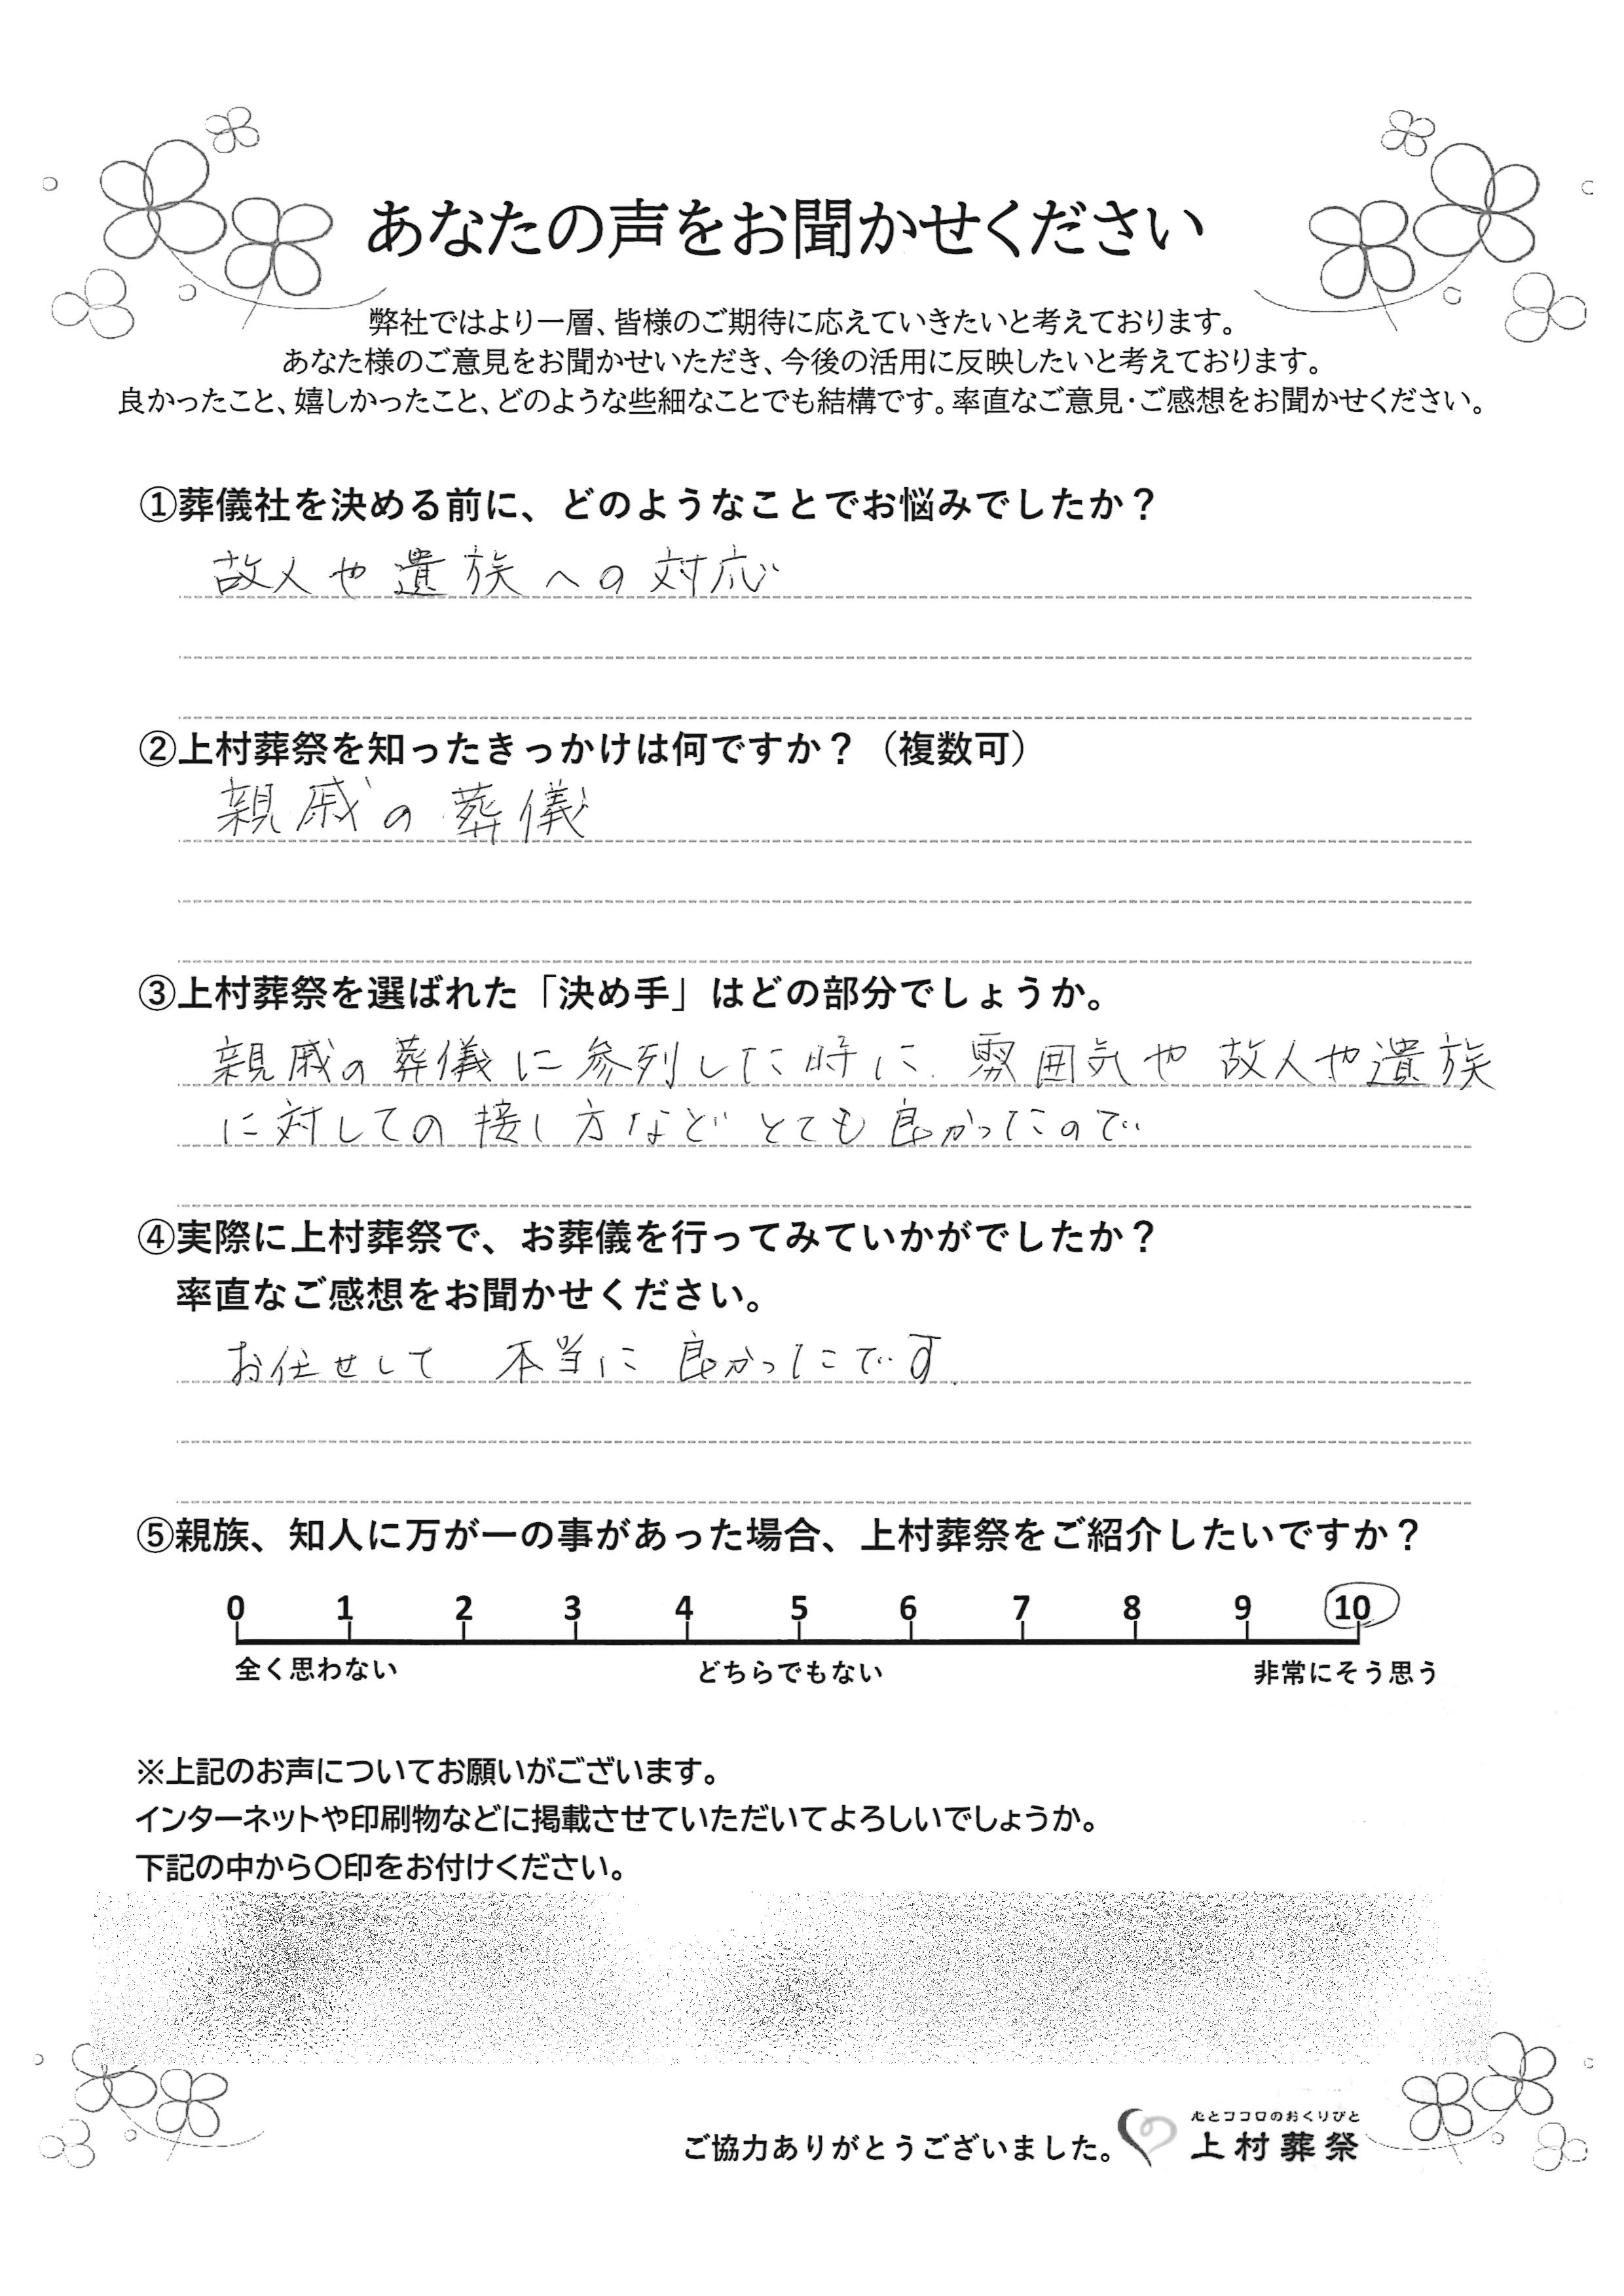 あなたの声をお聞かせください
弊社ではより一層、皆様のご期待に応えていきたいと考えております。
あなた様のご意見をお聞かせいただき、今後の活用に反映したいと考えております。
良かったこと、嬉しかったこと、どのような些細なことでも結構です。率直なご意見・ご感想をお聞かせください。
①葬儀社を決める前に、どのようなことでお悩みでしたか？
故人や遺族への対応
②上村葬祭を知ったきっかけは何ですか？（複数可）
親戚の葬儀
③上村葬祭を選ばれた「決め手」はどの部分でしょうか。
親戚の葬儀に参列した時に、雰囲気や故人や遺族
に対しての接し方などとても良かったので
④実際に上村葬祭で、お葬儀を行ってみていかがでしたか？
率直なご感想をお聞かせください。
お任せして 本当に良かったです。
⑤親族、知人に万が一の事があった場合、上村葬祭をご紹介したいですか？
0 1 2 3 4 5 6 7 8 9 10
全く思わない どちらでもない 非常にそう思う
※上記のお声についてお願いがございます。
インターネットや印刷物などに掲載させていただいてよろしいでしょうか。
下記の中から〇印をお付けください。
心とココロのおくりびと
ご協力ありがとうございました。 上村葬祭